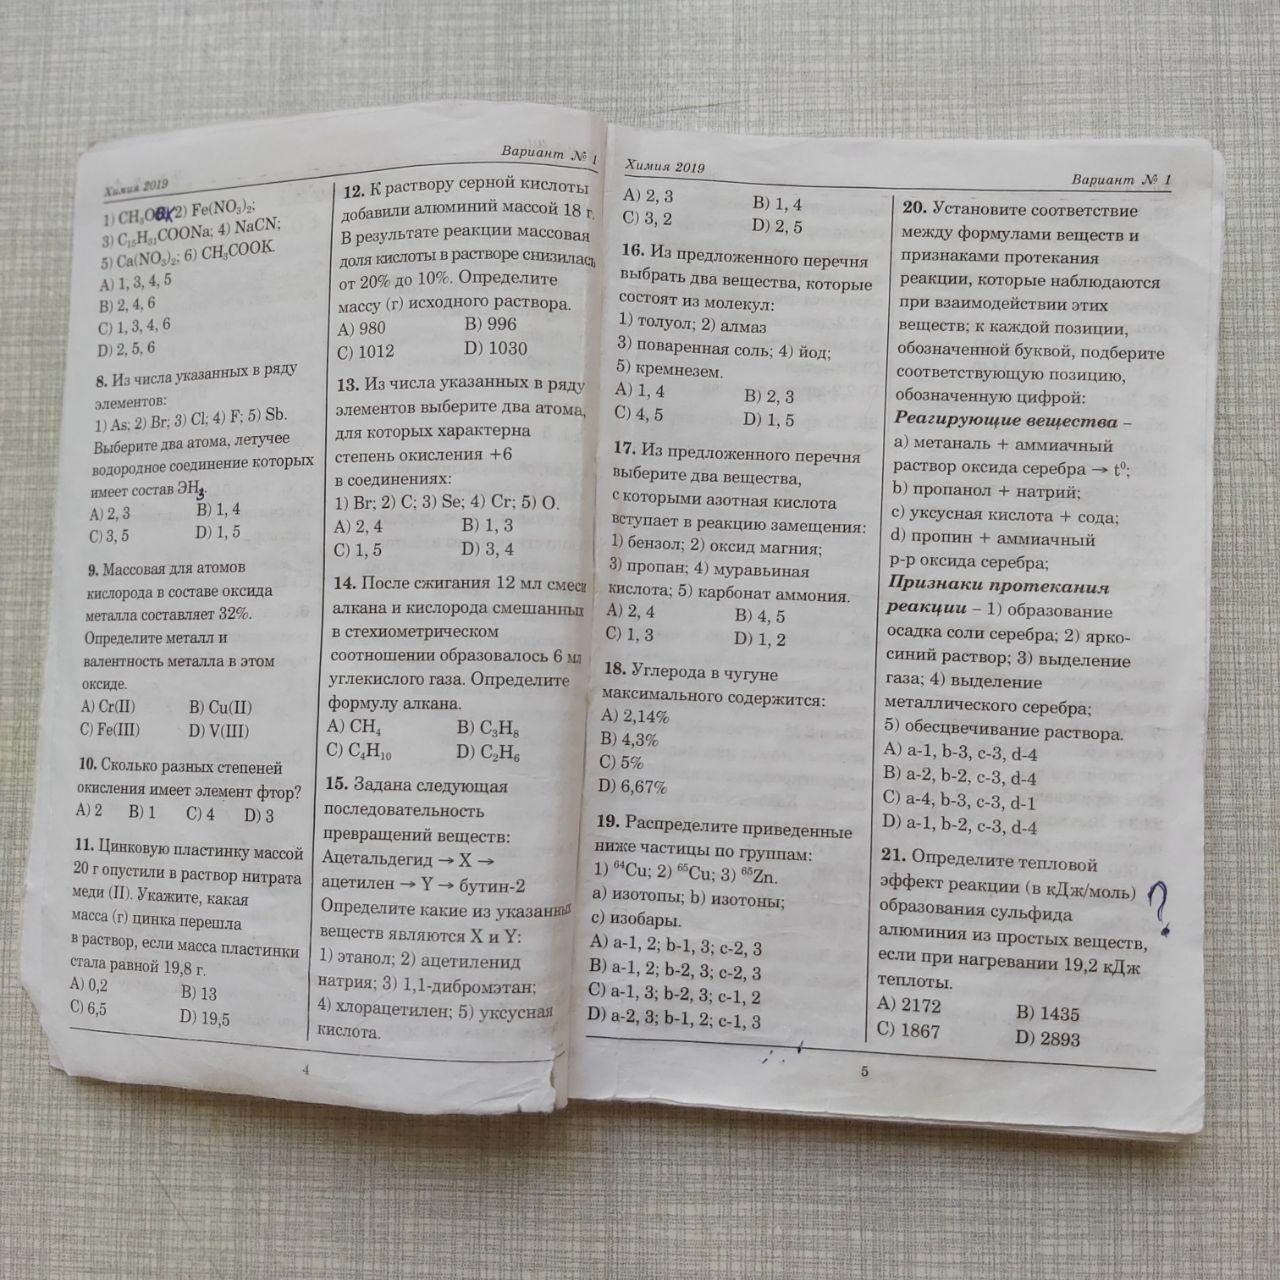 Химия 2019
Вариант № 1
1) CH₃OK 2) Fe(NO₃)₂;
3) C₁₅H₃₁COONa; 4) NaCN;
5) Ca(NO₃)₂; 6) CH₃COOK.
A) 1, 3, 4, 5
B) 2, 4, 6
C) 1, 3, 4, 6
D) 2, 5, 6
8. Из числа указанных в ряду
элементов:
1) As; 2) Br; 3) Cl; 4) F; 5) Sb.
Выберите два атома, летучее
водородное соединение которых
имеет состав ЭН₃.
A) 2, 3 B) 1, 4
C) 3, 5 D) 1, 5
9. Массовая для атомов
кислорода в составе оксида
металла составляет 32%.
Определите металл и
валентность металла в этом
оксиде.
A) Cr(II) B) Cu(II)
C) Fe(III) D) V(III)
10. Сколько разных степеней
окисления имеет элемент фтор?
A) 2 B) 1 C) 4 D) 3
11. Цинковую пластинку массой
20 г опустили в раствор нитрата
меди (II). Укажите, какая
масса (г) цинка перешла
в раствор, если масса пластинки
стала равной 19,8 г.
A) 0,2 B) 13
C) 6,5 D) 19,5
12. К раствору серной кислоты
добавили алюминий массой 18 г.
В результате реакции массовая
доля кислоты в растворе снизилась
от 20% до 10%. Определите
массу (г) исходного раствора.
A) 980 B) 996
C) 1012 D) 1030
13. Из числа указанных в ряду
элементов выберите два атома,
для которых характерна
степень окисления +6
в соединениях:
1) Br; 2) C; 3) Se; 4) Cr; 5) O.
A) 2, 4 B) 1, 3
C) 1, 5 D) 3, 4
14. После сжигания 12 мл смеси
алкана и кислорода смешанных
в стехиометрическом
соотношении образовалось 6 мл
углекислого газа. Определите
формулу алкана.
A) CH₄ B) C₃H₈
C) C₄H₁₀ D) C₂H₆
15. Задана следующая
последовательность
превращений веществ:
Ацетальдегид → X →
ацетилен → Y → бутин-2
Определите какие из указанных
веществ являются X и Y:
1) этанол; 2) ацетиленид
натрия; 3) 1,1-дибромэтан;
4) хлорацетилен; 5) уксусная
кислота.
4
Химия 2019
Вариант № 1
A) 2, 3 B) 1, 4
C) 3, 2 D) 2, 5
16. Из предложенного перечня
выбрать два вещества, которые
состоят из молекул:
1) толуол; 2) алмаз
3) поваренная соль; 4) йод;
5) кремнезем.
A) 1, 4 B) 2, 3
C) 4, 5 D) 1, 5
17. Из предложенного перечня
выберите два вещества,
с которыми азотная кислота
вступает в реакцию замещения:
1) бензол; 2) оксид магния;
3) пропан; 4) муравьиная
кислота; 5) карбонат аммония.
A) 2, 4 B) 4, 5
C) 1, 3 D) 1, 2
18. Углерода в чугуне
максимального содержится:
A) 2,14%
B) 4,3%
C) 5%
D) 6,67%
19. Распределите приведенные
ниже частицы по группам:
1) ⁶⁴Cu; 2) ⁶⁵Cu; 3) ⁶⁵Zn.
a) изотопы; b) изотоны;
c) изобары.
A) a-1, 2; b-1, 3; c-2, 3
B) a-1, 2; b-2, 3; c-2, 3
C) a-1, 3; b-2, 3; c-1, 2
D) a-2, 3; b-1, 2; c-1, 3
20. Установите соответствие
между формулами веществ и
признаками протекания
реакции, которые наблюдаются
при взаимодействии этих
веществ; к каждой позиции,
обозначенной буквой, подберите
соответствующую позицию,
обозначенную цифрой:
Реагирующие вещества –
a) метаналь + аммиачный
раствор оксида серебра → t⁰;
b) пропанол + натрий;
c) уксусная кислота + сода;
d) пропин + аммиачный
р-р оксида серебра;
Признаки протекания
реакции – 1) образование
осадка соли серебра; 2) ярко-
синий раствор; 3) выделение
газа; 4) выделение
металлического серебра;
5) обесцвечивание раствора.
A) a-1, b-3, c-3, d-4
B) a-2, b-2, c-3, d-4
C) a-4, b-3, c-3, d-1
D) a-1, b-2, c-3, d-4
21. Определите тепловой
эффект реакции (в кДж/моль) ?
образования сульфида
алюминия из простых веществ,
если при нагревании 19,2 кДж
теплоты.
A) 2172 B) 1435
C) 1867 D) 2893
5